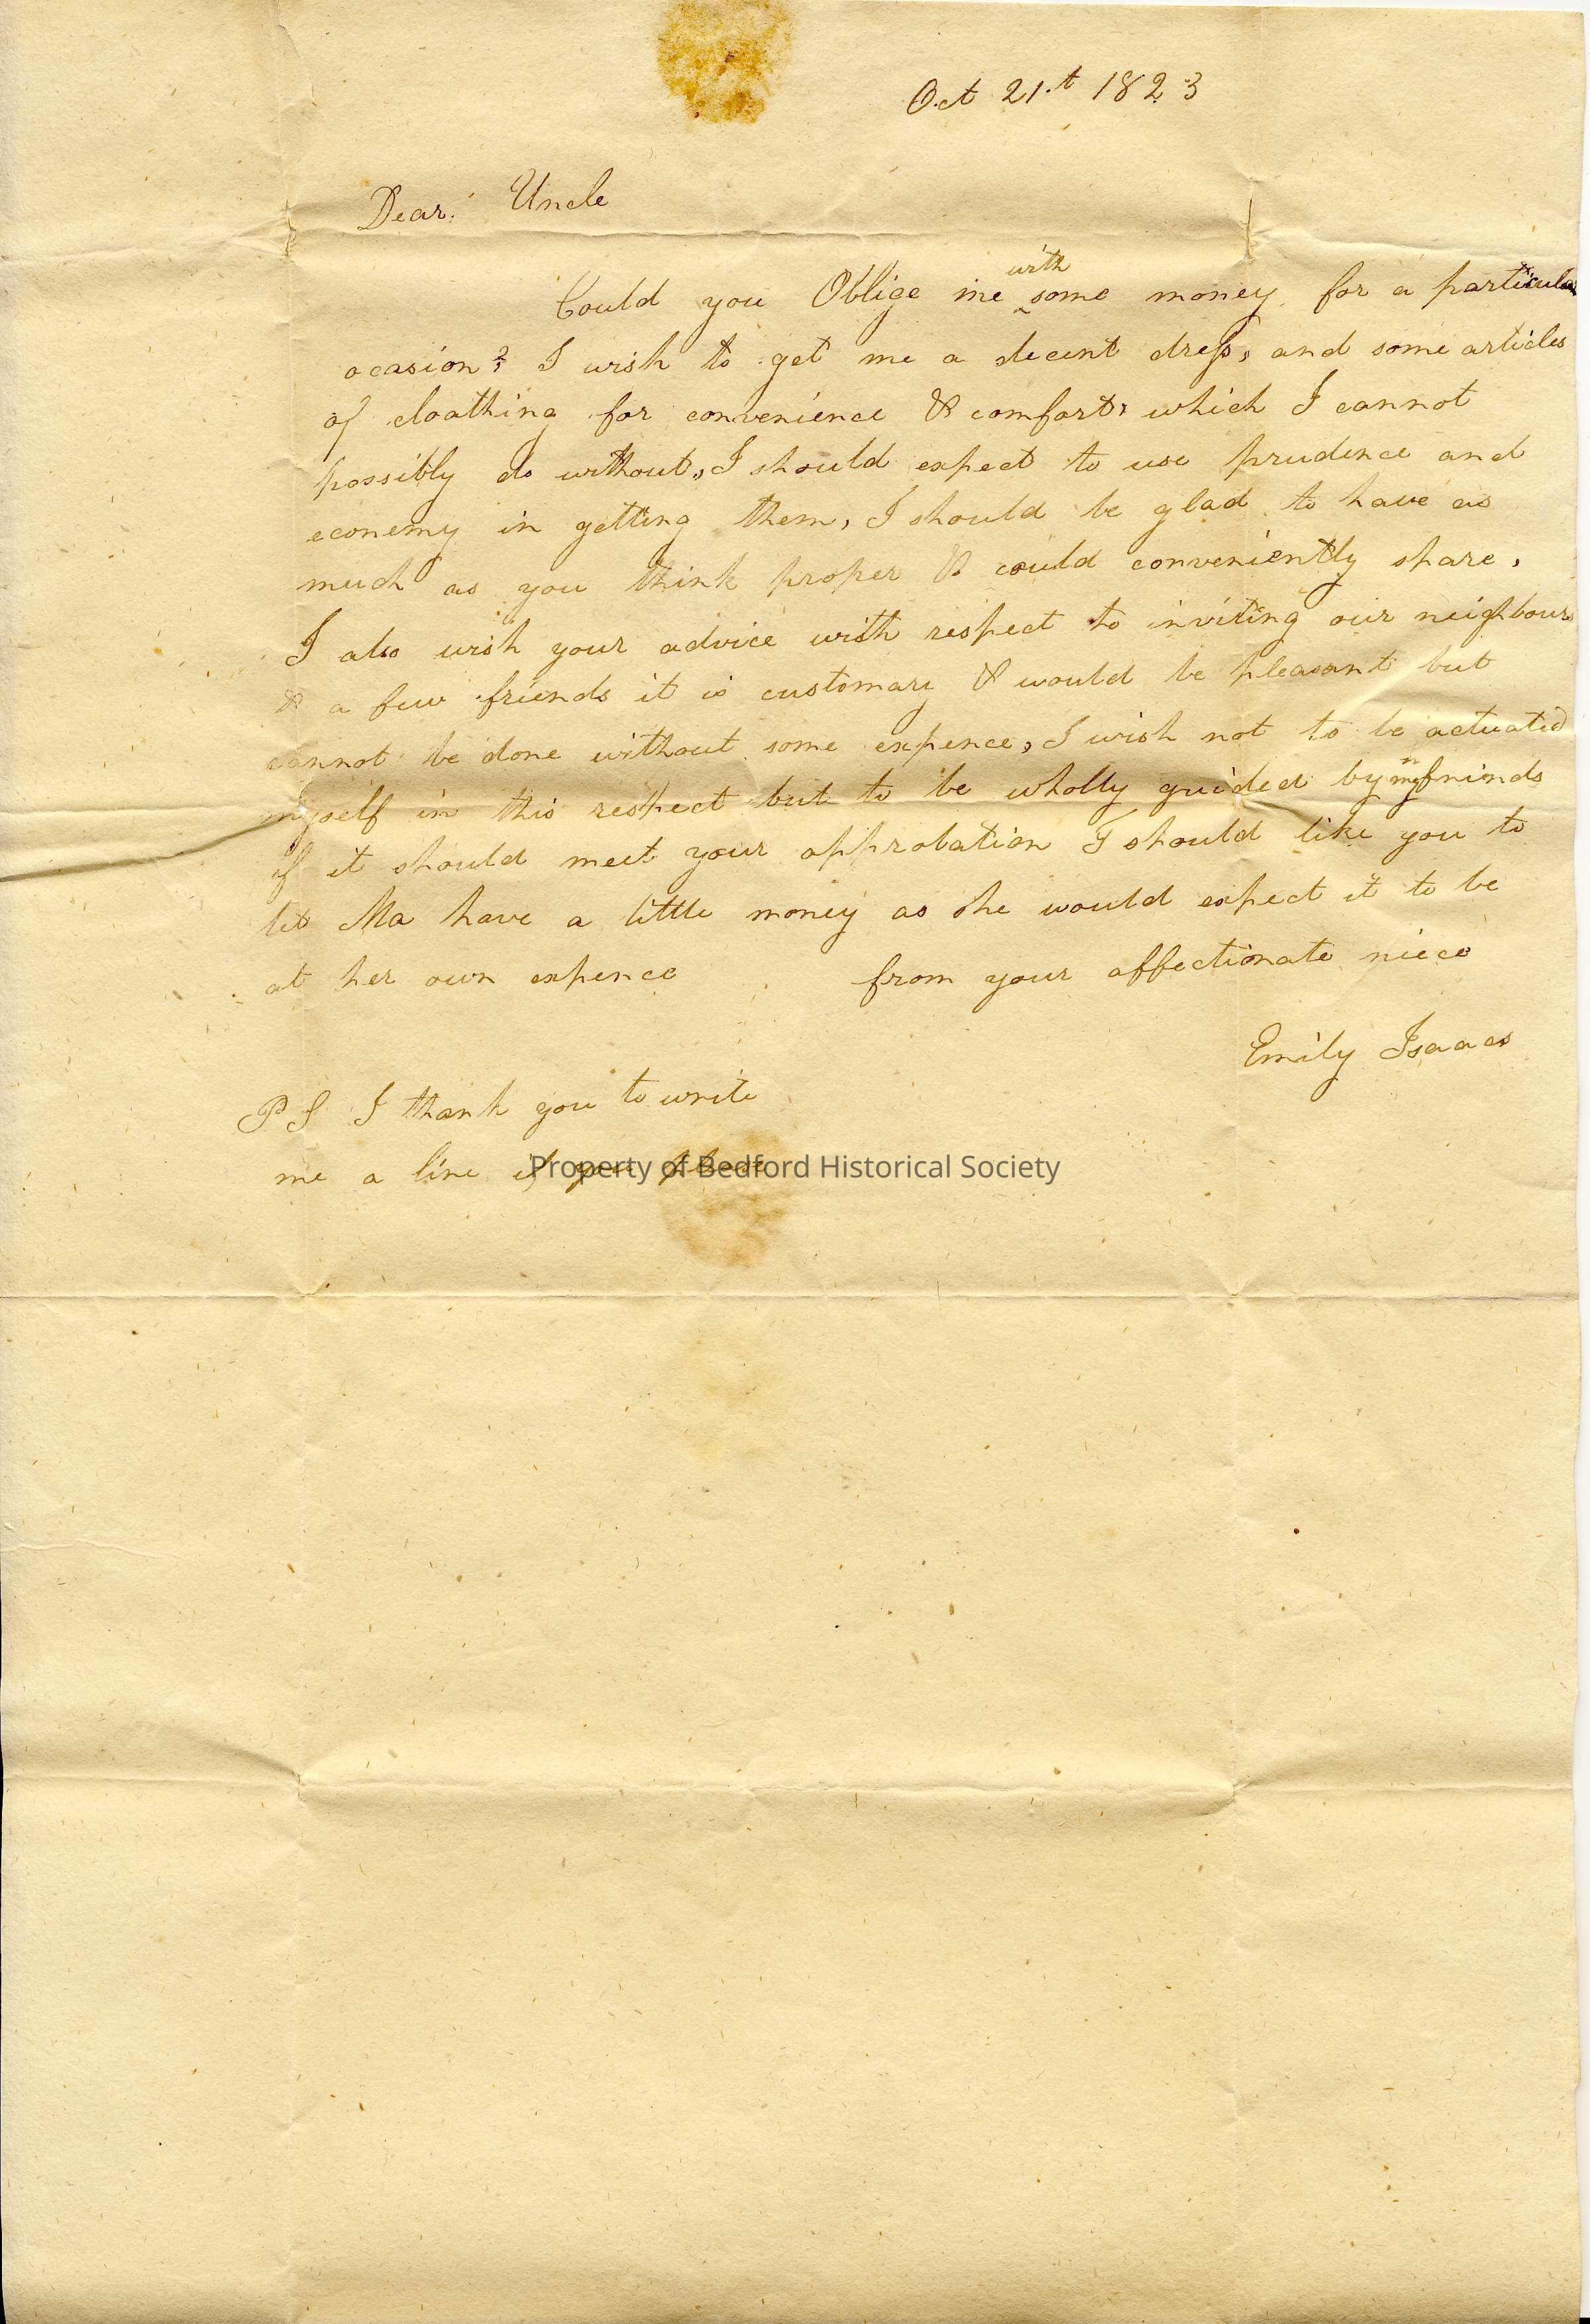 Oct 21.t 1823
Dear. Uncle
with
Could you Oblige me some money for a particular
ocasion? I wish to get me a decent dress, and some articles
of cloathing for convenience & comfort, which I cannot
possibly do without, I should expect to use prudence and
econemy in getting them, I should be glad to have as
much as you think proper & could conveniently spare,
I also wish your advice with respect to inviting our neighbours
& a few friends it is customary & would be pleasant but
cannot be done without some expence, I wish not to be actuated
myself in this respect but to be wholly guided by my frinds
if it should meet your approbation I should like you to
let Ma have a little money as she would expect it to be
at her own expence from your affectionate niece
Emily Isaacs
PS I thank you to write
me a line if you
Property of Bedford Historical Society